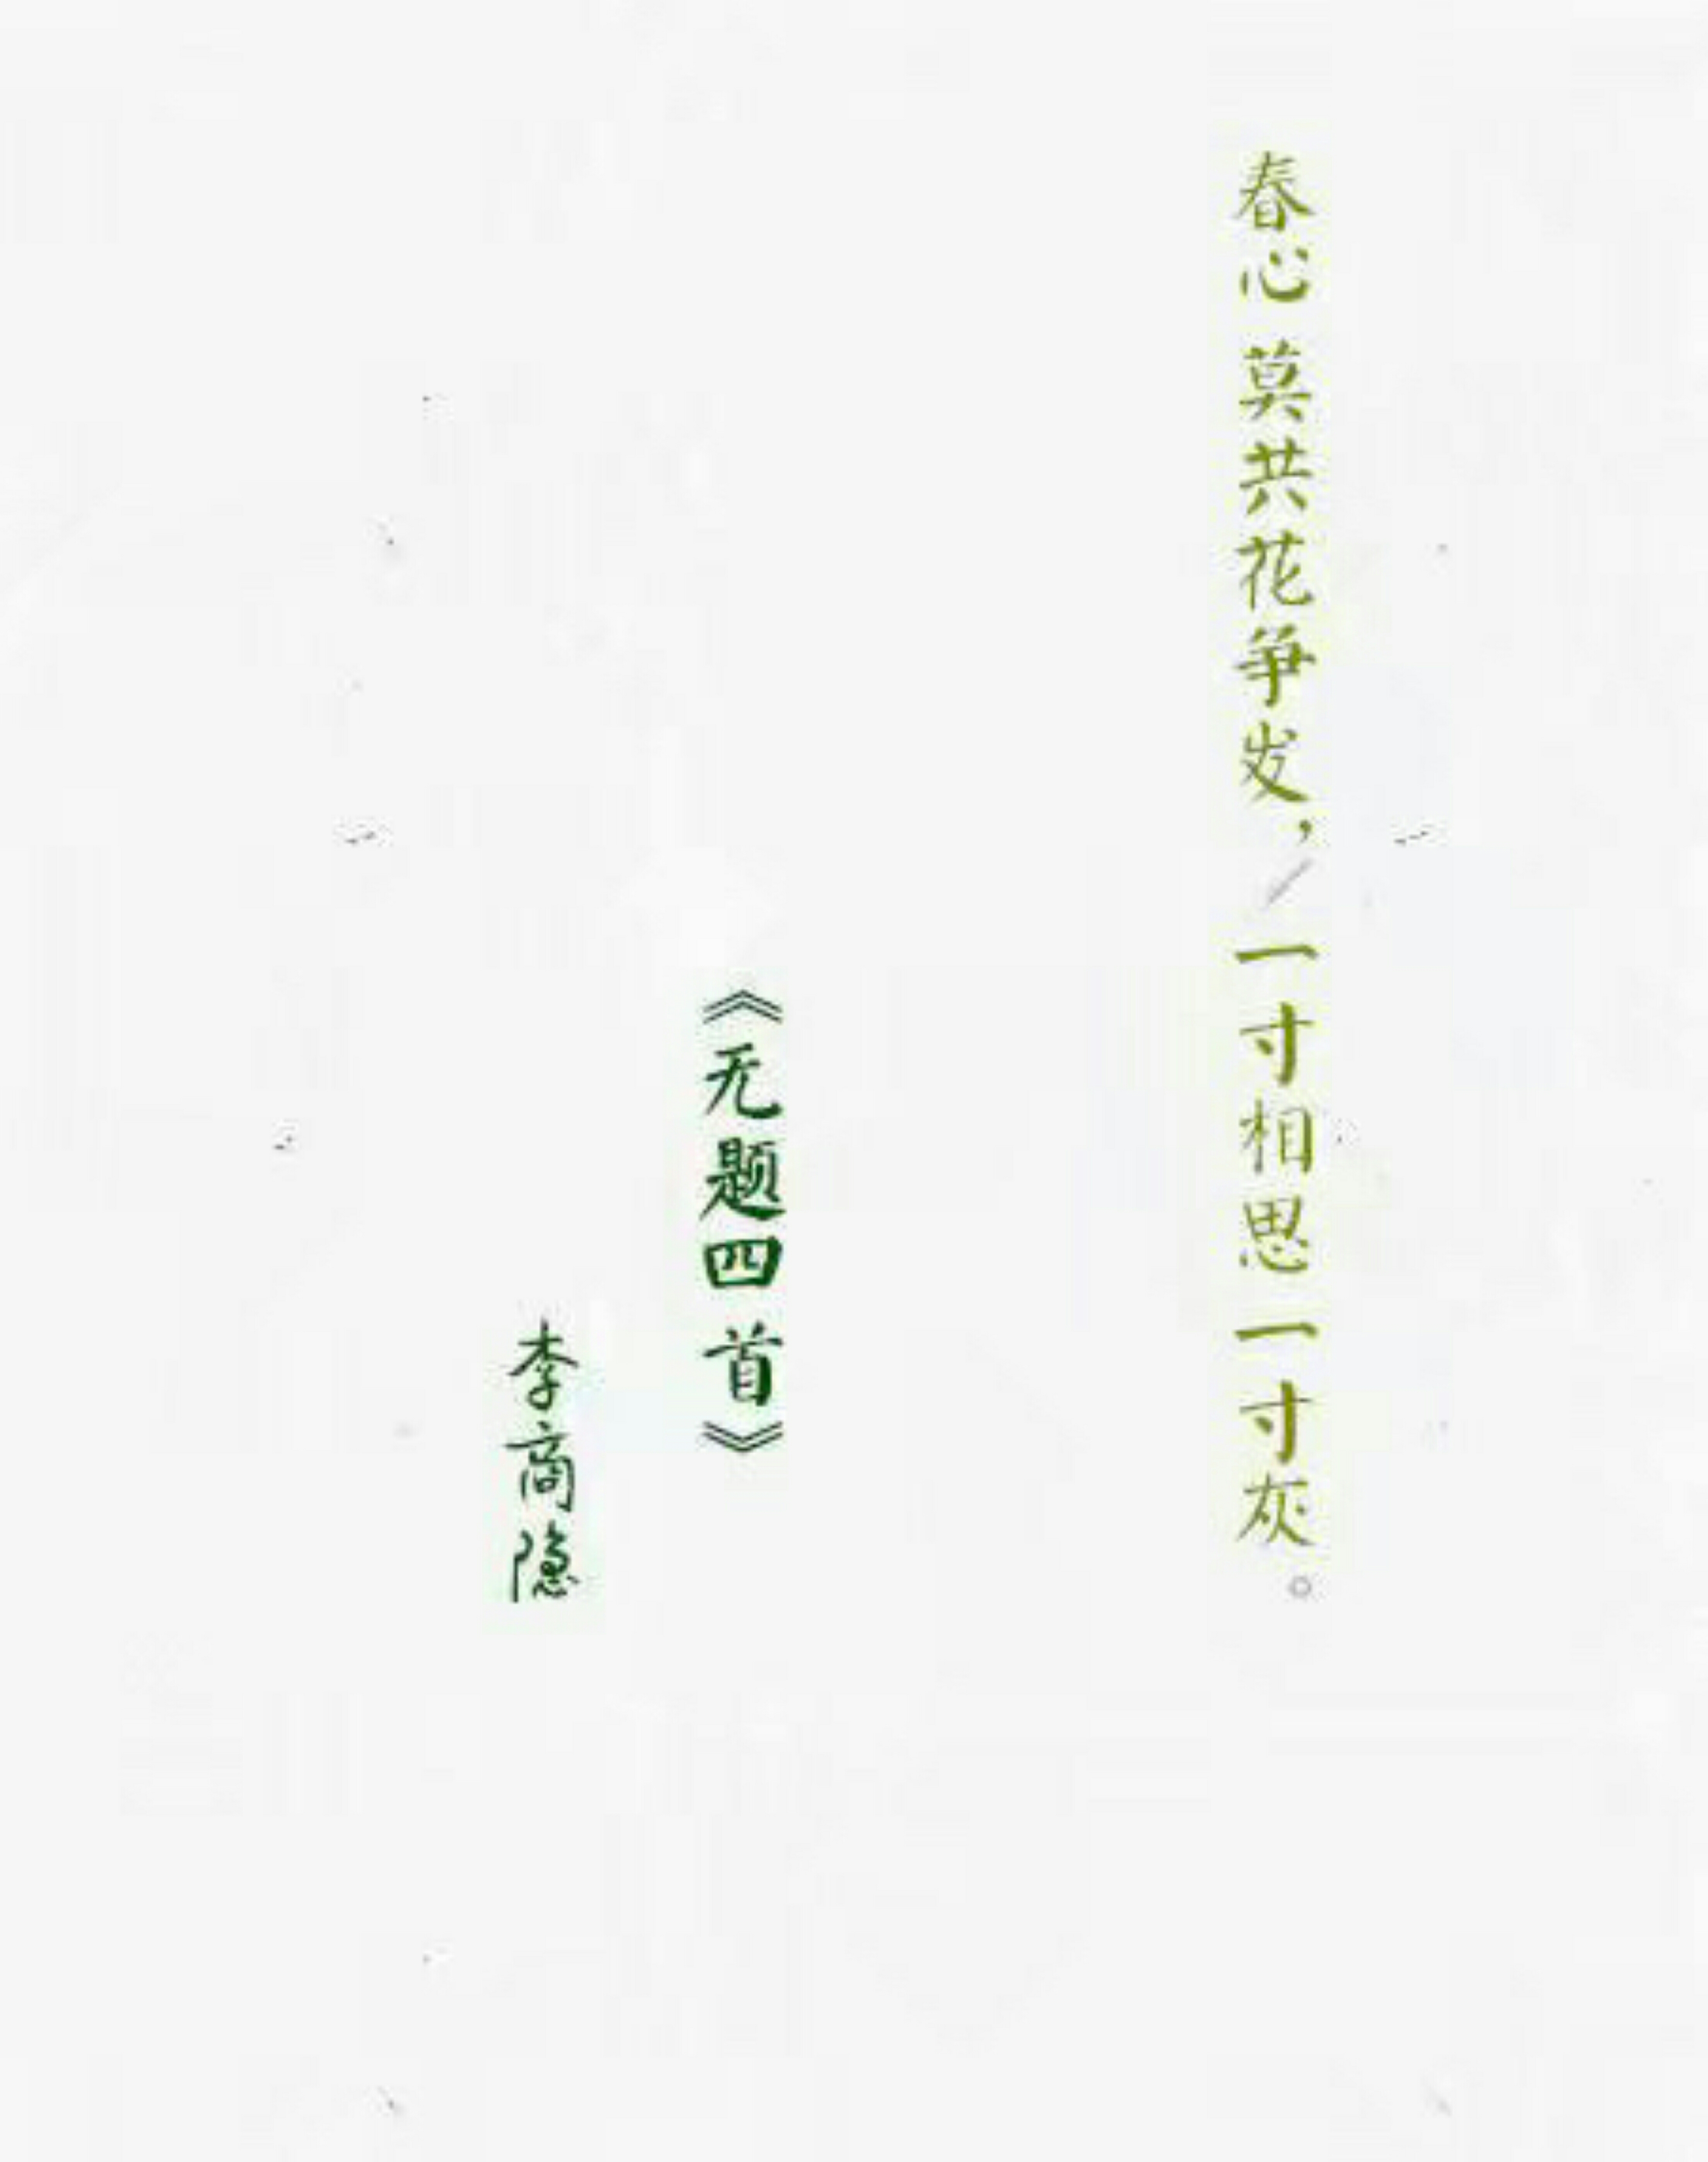 春心莫共花争发，/一寸相思一寸灰。
《无题四首》
李商隐